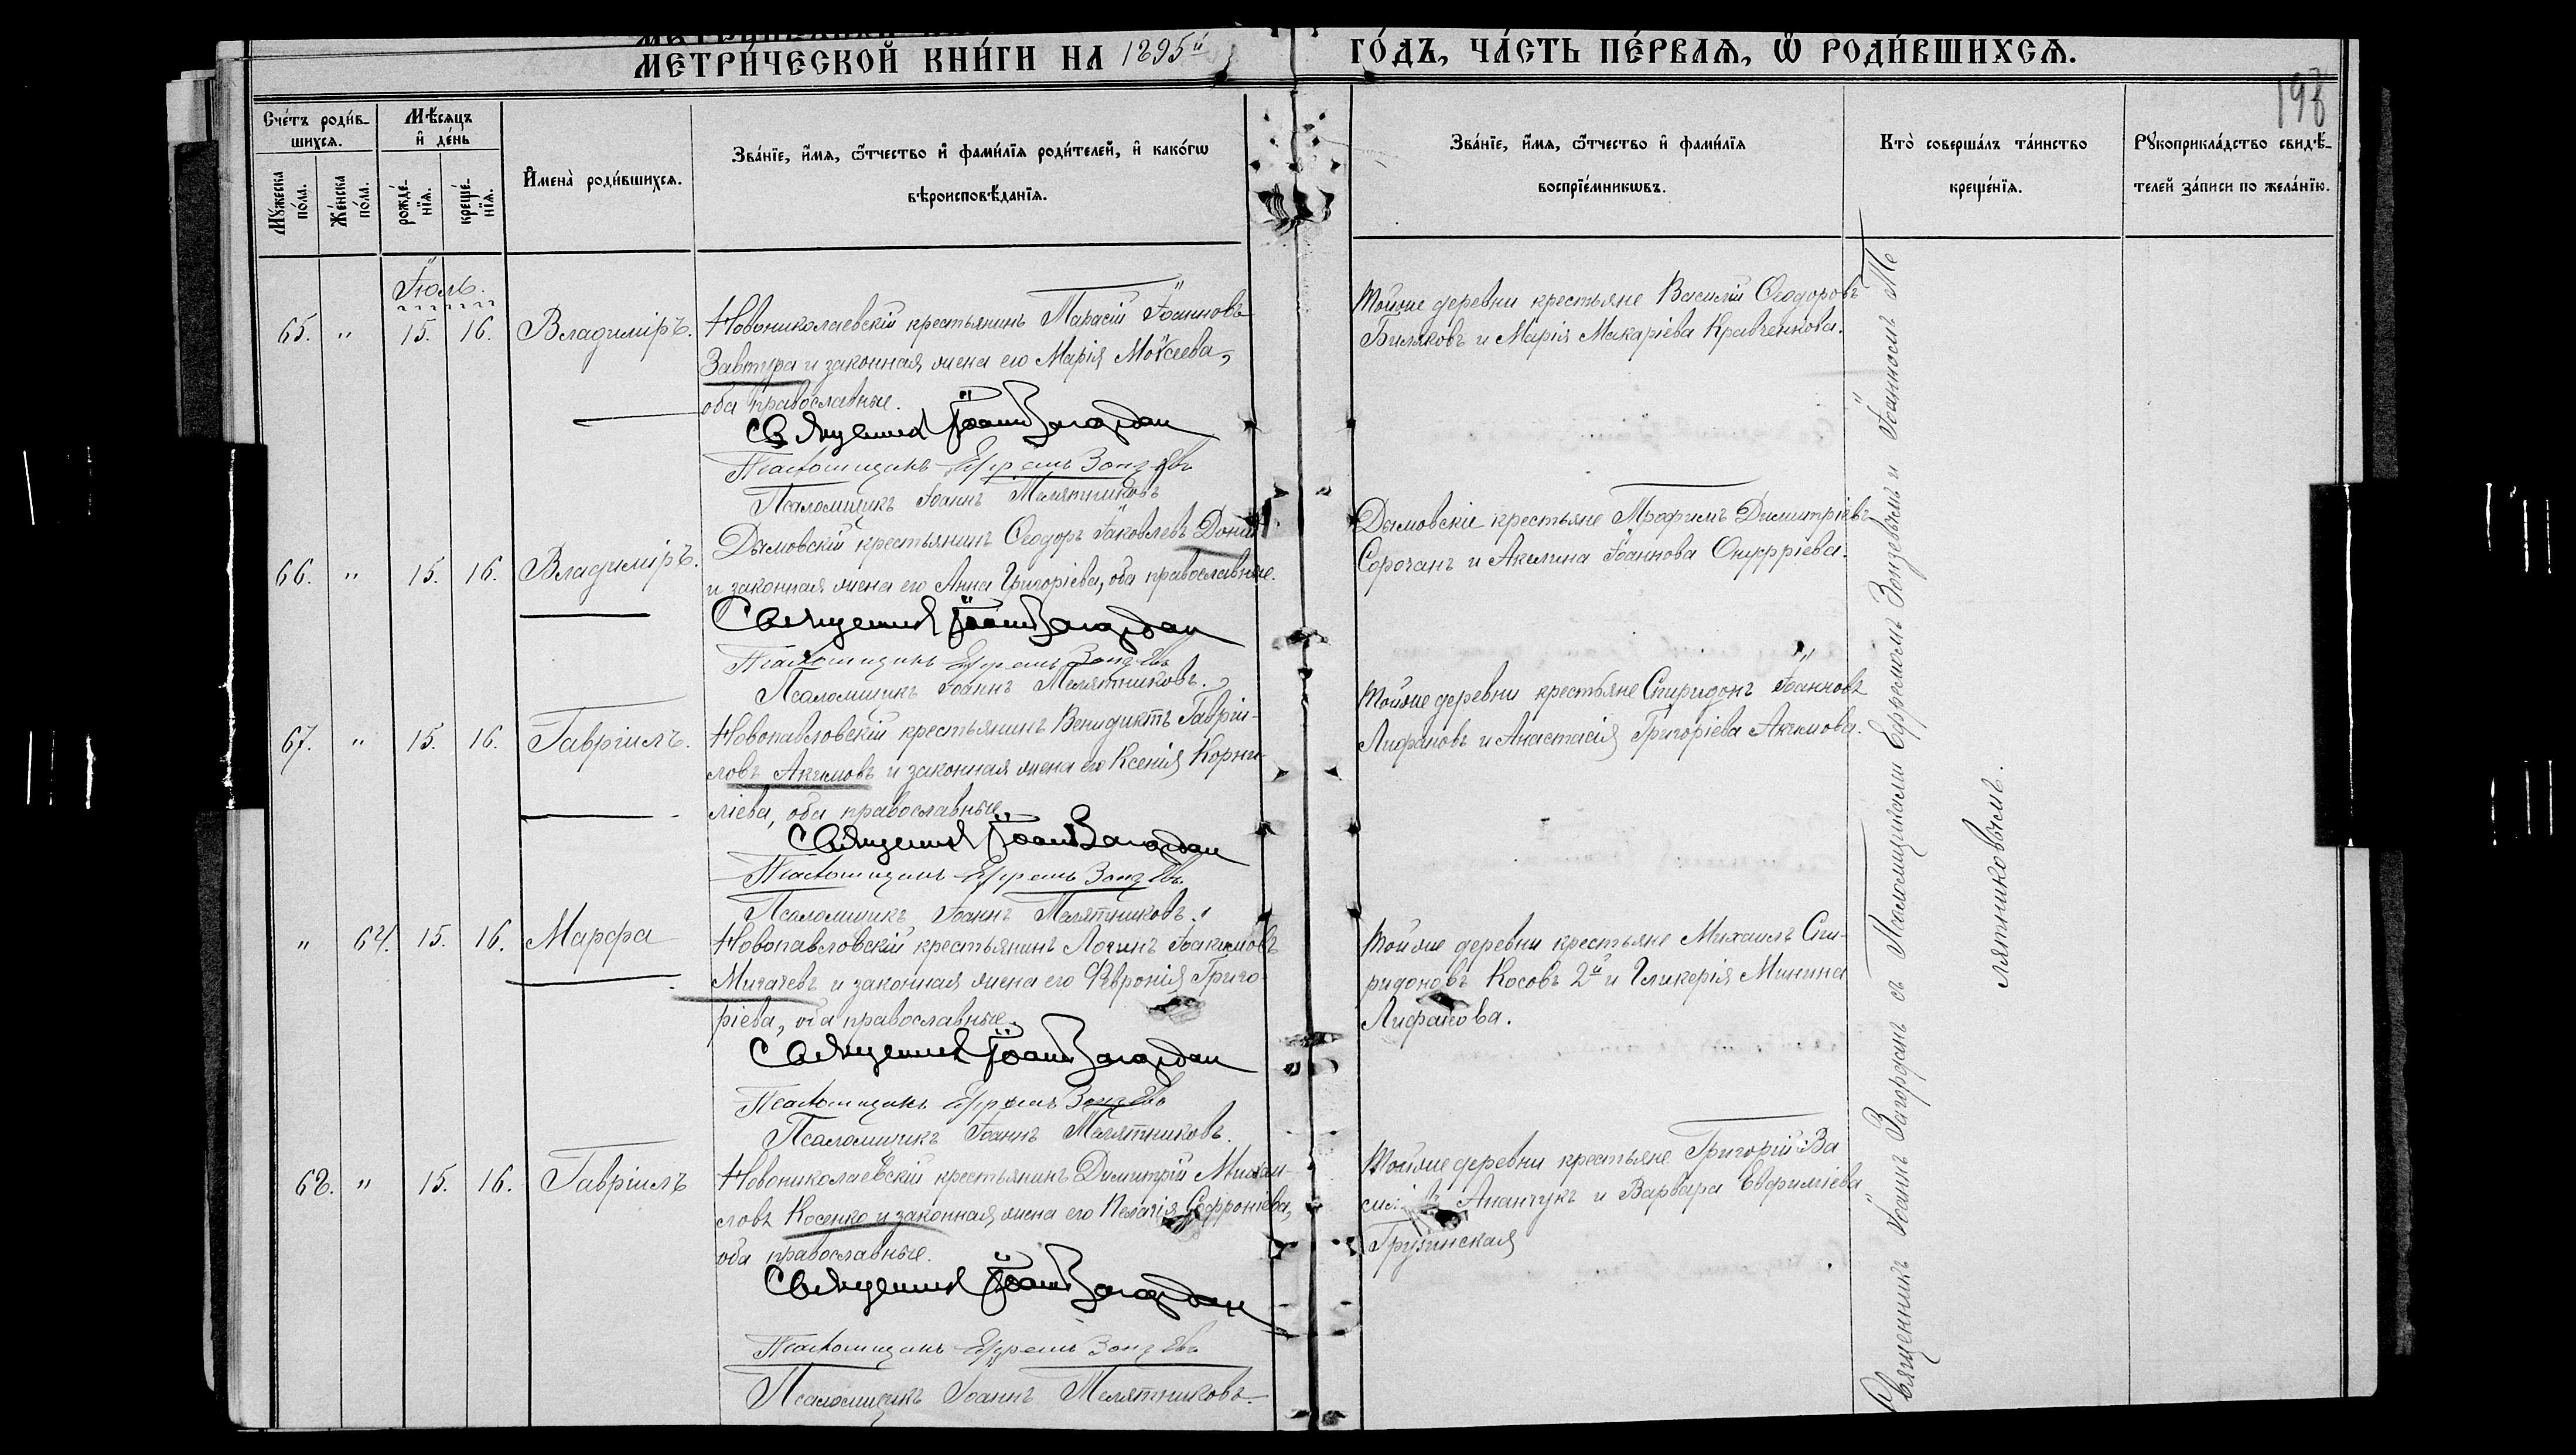 МЕТРИ́ЧЕСКОЙ КНИ́ГИ НА 1895й ГО́ДЪ, ЧА́СТЬ ПЕ́РВАЯ, Ѡ РОДИ́ВШИХСЯ.
198
Сче́тъ роди́в-
шихся.
Мѣ́сяцъ
и де́нь
Му́жеска
по́ла.
Же́нска
по́ла.
рожде́-
нїя.
креще́-
нїя.
Имена̀ роди́вшихся.
Зва́нїе, и́мя, ѻ҆́тчество и фами́лїя роди́телей, и како́гѡ
вѣроисповѣ́данїя.
Зва́нїе, и́мя, ѻ҆́тчество и фами́лїя
воспрїе́мникѡвъ.
Кто̀ соверша́лъ та́инство
креще́нїя.
Рꙋкоприкла́дство свидѣ́-
телей за́писи по жела́нїю.
Іюль.
65. " 15. 16. Владиміръ.
Новониколаевскій крестьянинъ Тарасій Іоанновъ
Завтура и законная жена его Марія Моѵсеева,
оба православные.
Священникъ Іоаннъ Загородан
Псаломщикъ Ефремъ Зонзевъ
Псаломщикъ Іоаннъ Телятниковъ
Тойже деревни крестьяне Василій Ѳеодоровъ
Биляковъ и Марія Макаріева Кравченкова.
66. " 15. 16. Владиміръ.
Дымовскій крестьянинъ Ѳеодоръ Іаковлевъ Дони
и законная жена его Анна Григоріева, оба православные.
Священникъ Іоаннъ Загородан
Псаломщикъ Ефремъ Зонзевъ
Псаломщикъ Іоаннъ Телятниковъ.
Дымовскіе крестьяне Трофимъ Димитріевъ
Сорочанъ и Акилина Іоаннова Онуфріева.
67. " 15. 16. Гавріилъ.
Новопавловскій крестьянинъ Венидиктъ Гавріи-
ловъ Акимовъ и законная жена его Ксенія Корни-
ліева, оба православные.
Священникъ Іоаннъ Загородан
Псаломщикъ Ефремъ Зонзевъ
Псаломщикъ Іоаннъ Телятниковъ.
Тойже деревни крестьяне Спиридонъ Іоанновъ
Лифановъ и Анастасія Григоріева Акимова.
" 64. 15. 16. Марфа
Новопавловскій крестьянинъ Логинъ Іоакимовъ
Мигачевъ и законная жена его Феѵронія Григо-
ріева, оба православные.
Священникъ Іоаннъ Загородан
Псаломщикъ Ефремъ Зонзевъ
Псаломщикъ Іоаннъ Телятниковъ.
Тойже деревни крестьяне Михаилъ Спи-
ридоновъ Косовъ 2й и Гликерія Минина
Лифанова.
68. " 15. 16. Гавріилъ
Новониколаевскій крестьянинъ Димитрій Михаи-
ловъ Косенко и законная жена его Пелагія Софроніева,
оба православные.
Священникъ Іоаннъ Загородан
Псаломщикъ Ефремъ Зонзевъ
Псаломщикъ Іоаннъ Телятниковъ.
Тойже деревни крестьяне Григорій Ва
силіевъ Ананчукъ и Варвара Евфиміева
Грузинская
Священникъ Іоаннъ Загороданъ съ Псаломщиками Ефремомъ Зонзевымъ и Іоанномъ Те
лятниковымъ.